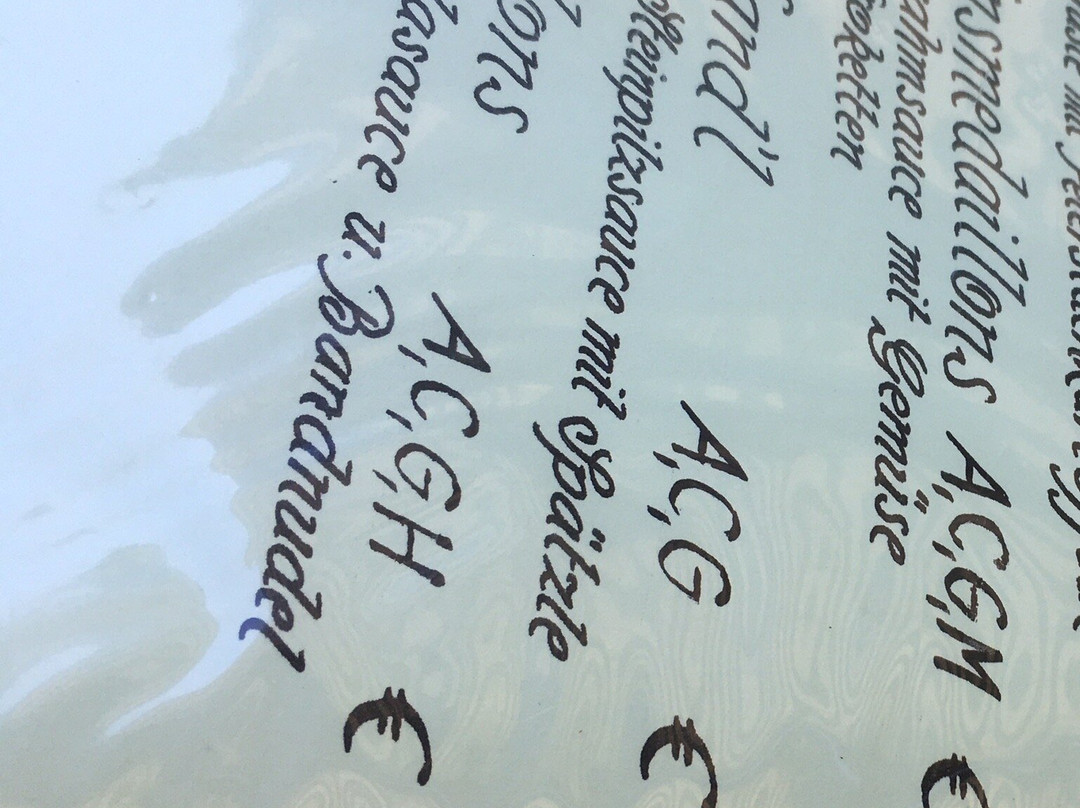 ismedaillons A,C,G,M €
ahmsauce mit Gemüse
roketten
and'l A,C,G €
Steinpilzsauce mit Spätzle
lons A,C,G,H €
lasauce u. Bandnudel